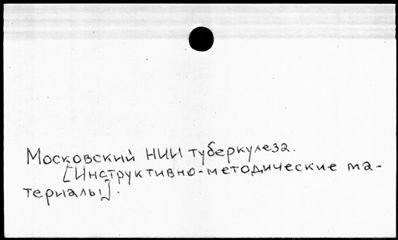 Московский НИИ туберкулеза.
[Инструктивно-методические ма-
териалы].